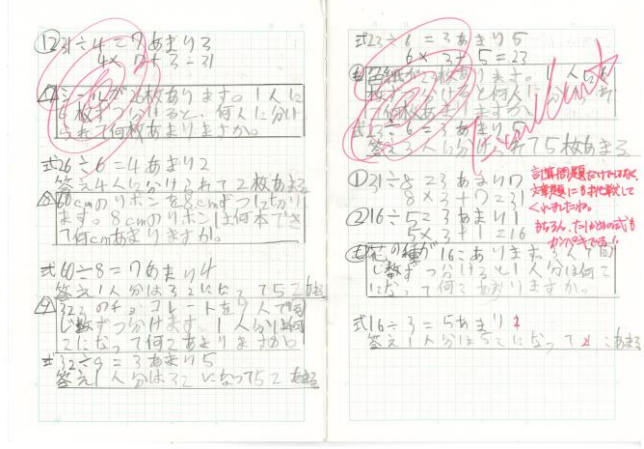 ①31÷4=7あまり3
4×7+3=31
シールが26枚あります。1人に
6枚ずつ分けると、何人に分け
られて何枚あまりますか。
式26÷6=4あまり2
答え4人に分けられて2枚あまる
60cmのリボンを8cmずつ切り
ます。8cmのリボンは何本でき
て何cmあまりますか。
式60÷8=7あまり4
答え1人分は3こになって5こあまる
④32このチョコレートを9人で同
じ数ずつ分けます。1人分は何
こになって何こあまりますか。
式32÷9=3あまり5
答え1人分は3こになって5こあまる
式23÷6=3あまり5
6×3+5=23
色紙が23枚あります。1人に6
枚ずつ分けると何人に分けられ
て何枚あまりますか。
式23÷6=3あまり5
答え3人に分けられて5枚あまる
Excellent☆
①31÷8=3あまり7
8×3+7=31
②16÷5=3あまり1
5×3+1=16
計算問題だけではなく、
文章題にも挑戦して
くれましたね。
もちろん、たしかめの式も
カンペキです!!
花の種が16こあります。3人で同
じ数ずつ分けると1人分は何こ
になって何こあまりますか。
式16÷3=5あまり1
答え1人分は5こになって1こあまる